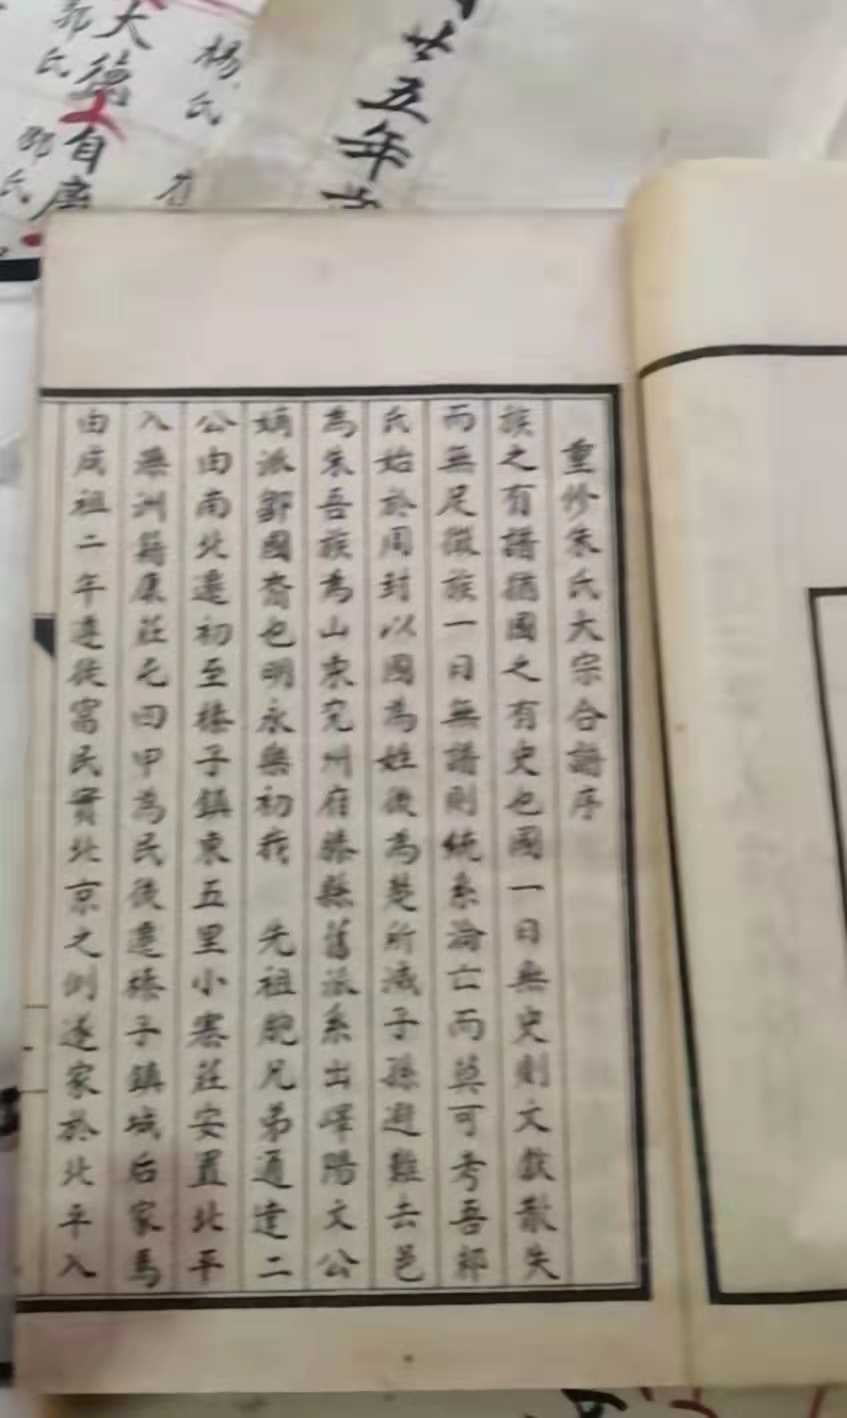 重修朱氏大宗合譜序
族之有譜猶國之有史也國一日無史則文獻散失
而無足徵族一日無譜則統系淪亡而莫可考吾邾
氏始於周封以國為姓後為楚所滅子孫避難去邑
為朱吾族為山東兗州府滕縣舊派系出嶧陽文公
嫡派鄒國裔也明永樂初我 先祖胞兄弟通達二
公由南北遷初至榛子鎮東五里小寨莊安置北平
入灤洲籍康莊屯四甲為民後遷榛子鎮城后家馬
由成祖二年遷徙富民實北京之側遂家於北平入
廿五年
楊氏
大德
自
氏
邵氏